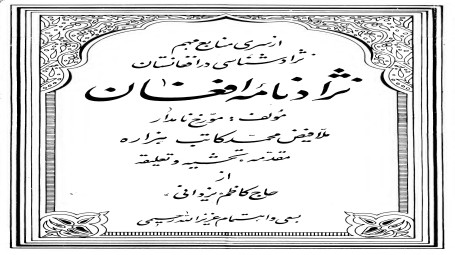 از سری منابع مهم
نژاد شناسی در افغانستان
نژادنامهٔ افغان
مؤلف: مؤرخ نامدار
ملا فیض محمد کاتب هزاره
مقدمه تحشیه و تعلیقه
از
حاج کاظم یزدانی
بسعی و اهتمام عزیزالله رحیمی